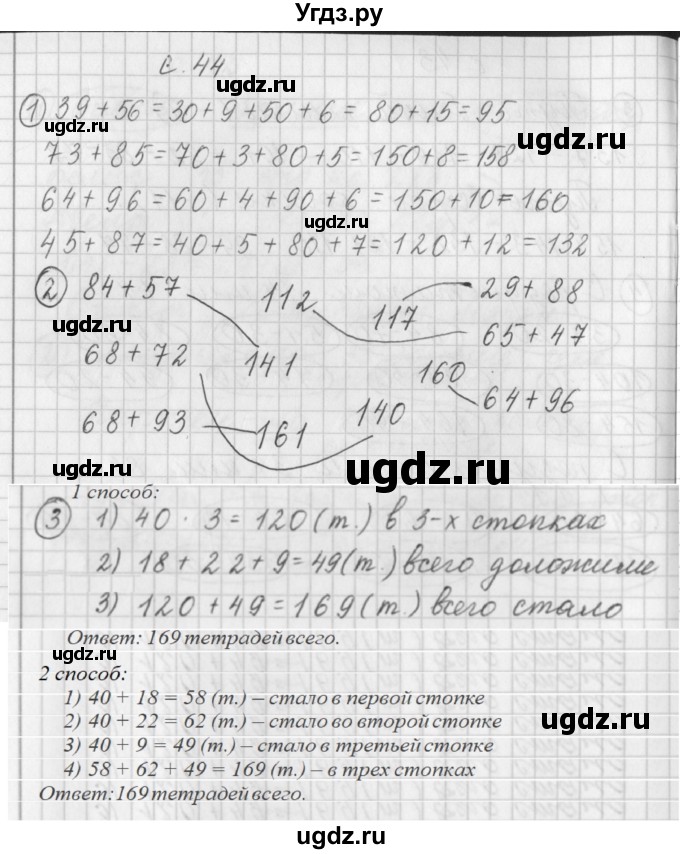 Угдз.ру
с. 44
ugdz.ru
1 39 + 56 = 30 + 9 + 50 + 6 = 80 + 15 = 95
ugdz.ru
ugdz.ru
73 + 85 = 70 + 3 + 80 + 5 = 150 + 8 = 158
64 + 96 = 60 + 4 + 90 + 6 = 150 + 10 = 160
ugdz.ru
45 + 87 = 40 + 5 + 80 + 7 = 120 + 12 = 132
2 84 + 57 112 117 29 + 88
ugdz.ru
65 + 47
68 + 72 141 160
64 + 96
68 + 93 161 140
ugdz.ru
1 способ:
3 1) 40 · 3 = 120 (т.) в 3-х стопках
2) 18 + 22 + 9 = 49 (т.) всего доложили
3) 120 + 49 = 169 (т.) всего стало
Ответ: 169 тетрадей всего.
ugdz.ru
2 способ:
1) 40 + 18 = 58 (т.) – стало в первой стопке
2) 40 + 22 = 62 (т.) – стало во второй стопке
ugdz.ru
3) 40 + 9 = 49 (т.) – стало в третьей стопке
4) 58 + 62 + 49 = 169 (т.) – в трех стопках
Ответ: 169 тетрадей всего.
ugdz.ru